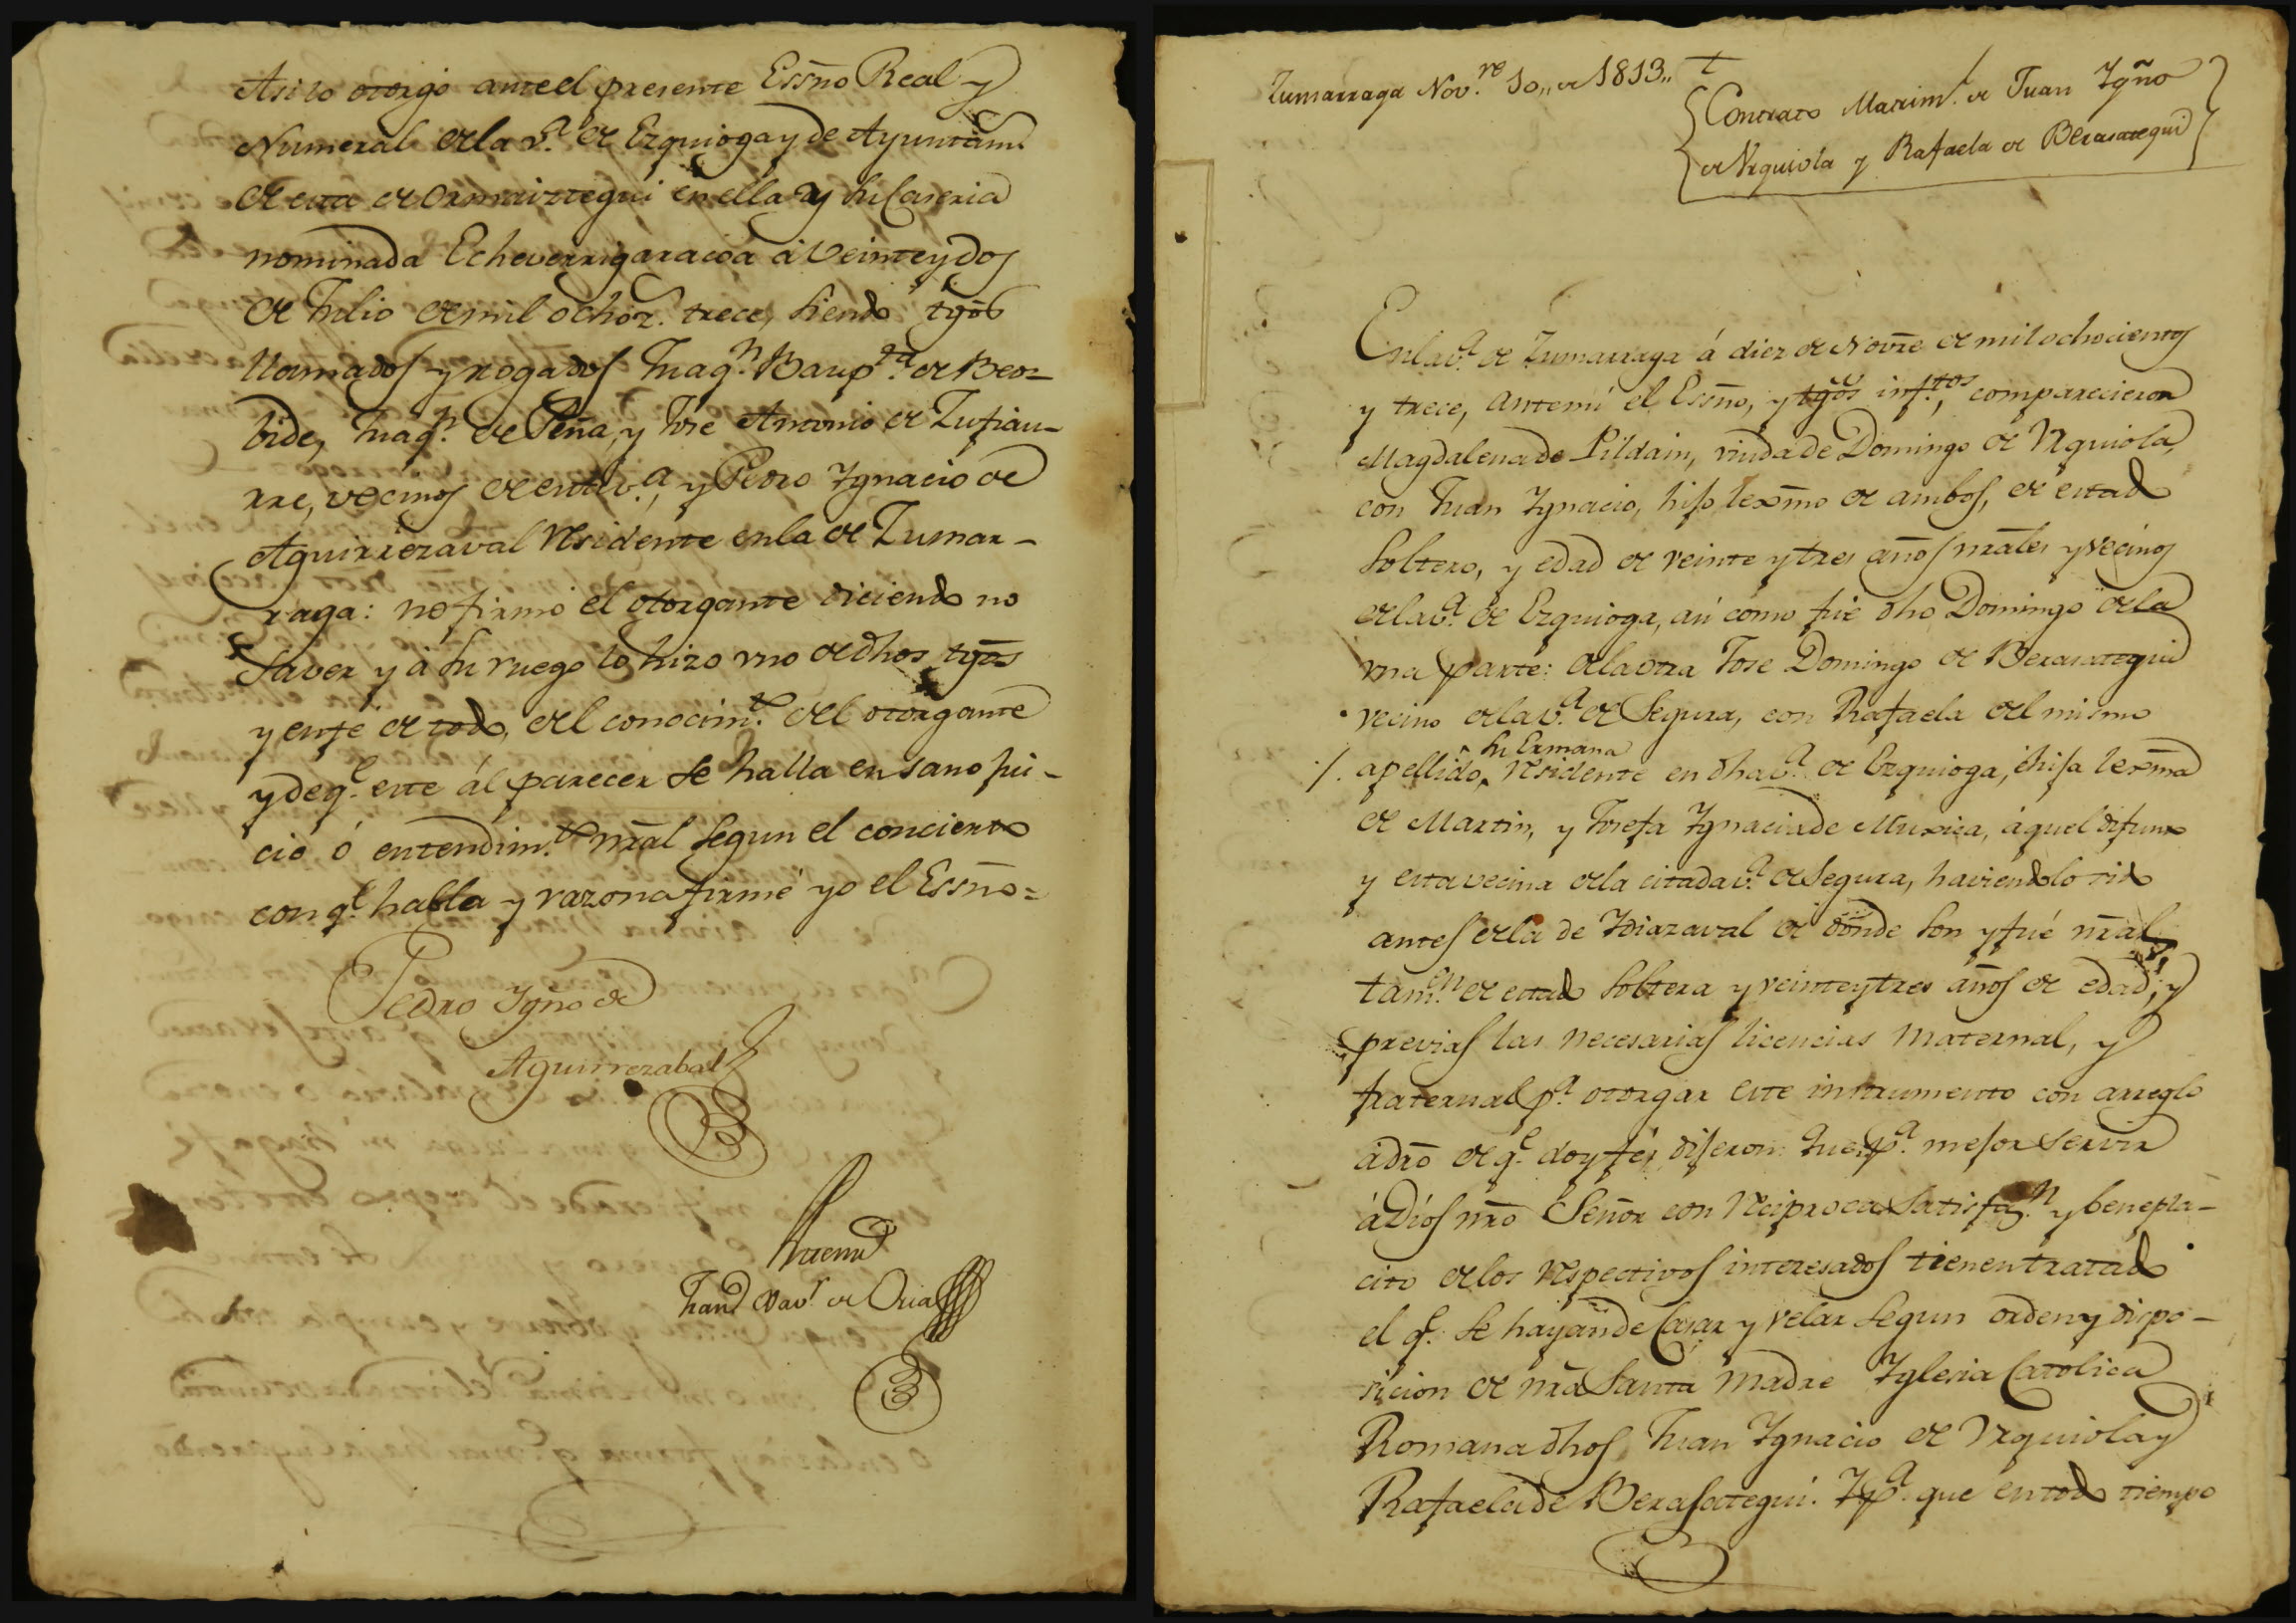 Asi lo otorgó ante el presente Essño Real y
Numeral de la v.ª de Ezquioga y de Ayuntam.
de esta de Ormaiztegui en ella y su Caseria
nominada Echeverrigaracoa á Veinte y dos
de Julio de mil ochoz. trece, siendo tgõs
llamados y rogados Juaq.n Baup.ta de Beor-
bide, Juaq.n de Peña, y Jose Antonio de Zufiau-
rre, vecinos de esta v.ª, y Pedro Ygnacio de
Aguirrezaval residente en la de Zumar-
raga: no firmó el otorgante diciendo no
saver y á su ruego lo hizo uno de dhos tgõs
y en fe de todo, del conocim.to del otorgante
y de q.e este ál parecer se halla en sano jui-
cio ó entendim.to nrãl segun el concierto
con q.e habla y razona firmé yo el Essño=
Pedro Ygño de
Aguirrezabal
Antemi
Juan Xav.r de Oria
Zumarraga Nov.re 10,, de 1813,,
Contrato Matrim.l de Juan Ygño
de Urquiola y Rafaela de Berasategui
En la v.ª de Zumarraga á diez de Novrẽ de mil ochocientos
y trece, ante mi el Essño, y tgõs inf.tos, comparecieron
Magdalena de Pildain, viuda de Domingo de Urquiola,
con Juan Ygnacio, hijo lexm̃o de ambos, de estado
soltero, y edad de veinte y tres años nrãles y vecinos
de la v.ª de Ezquioga, asi como fue dho Domingo de la
una parte: de la otra Jose Domingo de Berasategui
vecino de la v.ª de Segura, con Rafaela del mismo
su Ermana
/. apellido, residente en dha v.ª de Ezquioga, é hija lexm̃a
de Martin, y Josefa Ygnacia de Muxica, áquel difunto
y esta vecina de la citada v.ª de Segura, haviendolo sido
antes de la de Ydiazaval de donde son y fué nrãl,
tam.en de estado soltera y veinte y tres años de edad; y
previas las necesarias licencias maternal, y
fraternal p.ª otorgar este instrumento con arreglo
á drõ de q.e doy fé, dijeron: Que p.ª mejor servir
á Dios nrõ Señor con reciproca satisfaz.n y benepla-
cito de los respectivos interesados tienen tratado
el q.e se hayan de Casar y velar segun orden y dispo-
sicion de nrã Santa Madre Yglesia Catolica
Romana dhos Juan Ygnacio de Urquiola y
Rafaela de Berasategui. Y p.ª que en todo tiempo